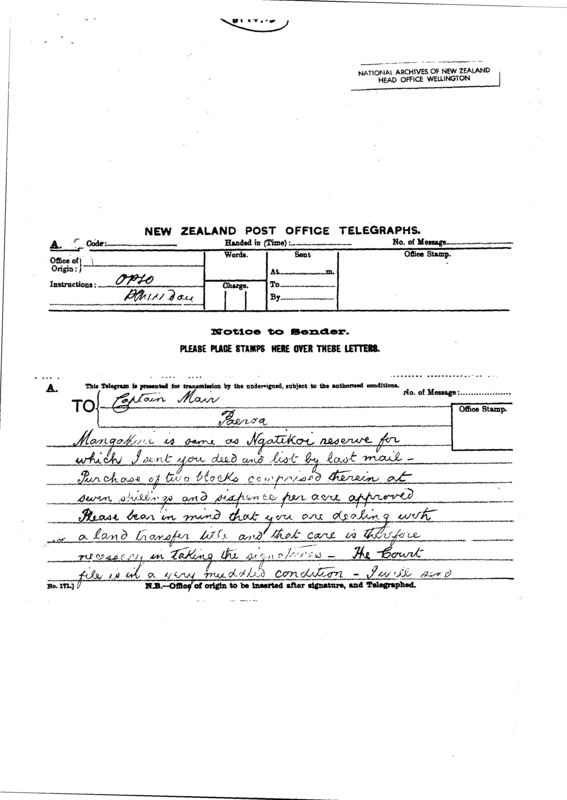 NATIONAL ARCHIVES OF NEW ZEALAND
HEAD OFFICE WELLINGTON
NEW ZEALAND POST OFFICE TELEGRAPHS.
A. Code: Handed in (Time): No. of Message
Office of Origin: Words. Sent Office Stamp.
At m.
Instructions: OPSO Charge. To
By
Notice to Sender.
PLEASE PLACE STAMPS HERE OVER THESE LETTERS.
A. This Telegram is presented for transmission by the undersigned, subject to the authorised conditions. No. of Message:
TO Captain Mair Office Stamp.
Paeroa
Mangakiri is same as Ngatikoi reserve for
which I sent you deed and list by last mail -
Purchase of two blocks comprised therein at
seven shillings and sixpence per acre approved
Please bear in mind that you are dealing with
a land transfer title and that care is therefore
necessary in taking the signatures - The Court
file is in a very muddled condition - I will send
No. 171.] N.B.—Office of origin to be inserted after signature, and Telegraphed.